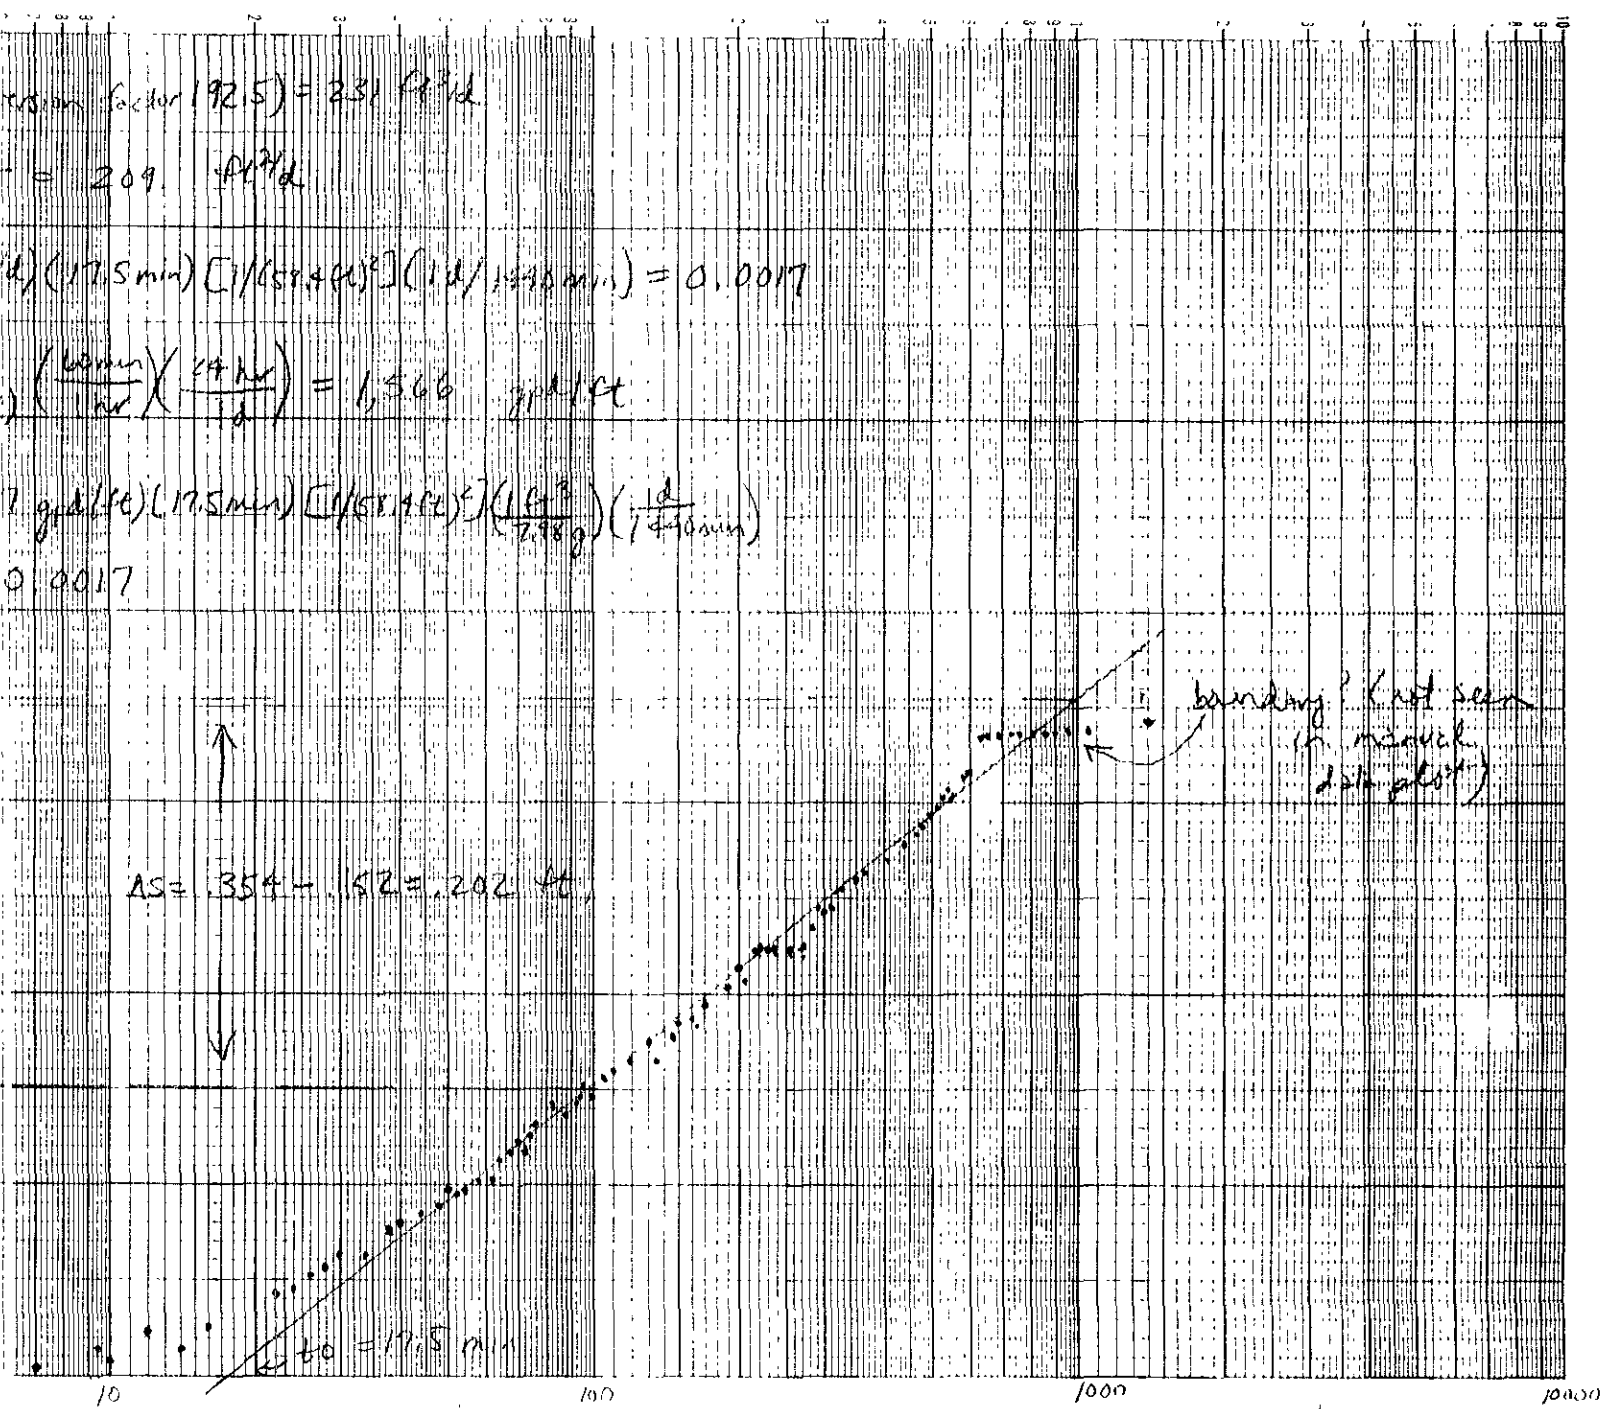 factor 192.5) = 231 ft³/d
= 209 ft²/d
d) (17.5 min) [1/(58.4 ft)²] (1d/1440 min) = 0.0017
(60 min / hr) (24 hr / 1d) = 1,566 gpd/ft
7 gpd/ft) (17.5 min) [1/(58.4 ft)²] (1 ft³ / 7.48 g) (d / 1440 min)
0.0017
boundary? (not seen
in manual
data plot)
ΔS = .354 - .152 = .202 ft.
to = 17.5 min
10 100 1000 10000